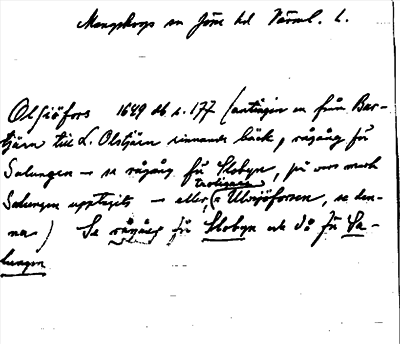 Mangskogs sn Jösse hd Värml. l.
Olsjöfors 1649 db s. 177 (antingen en från Bar-
tjärn till L. Olstjärn rinnande bäck, rågång för
Salungen – se rågång för Slobyn, på vars mark
Salungen upptagits – eller, troligare, = Ulvsjöforsen, se den-
na) Se rågång för Slobyn och då för Sa-
lungen